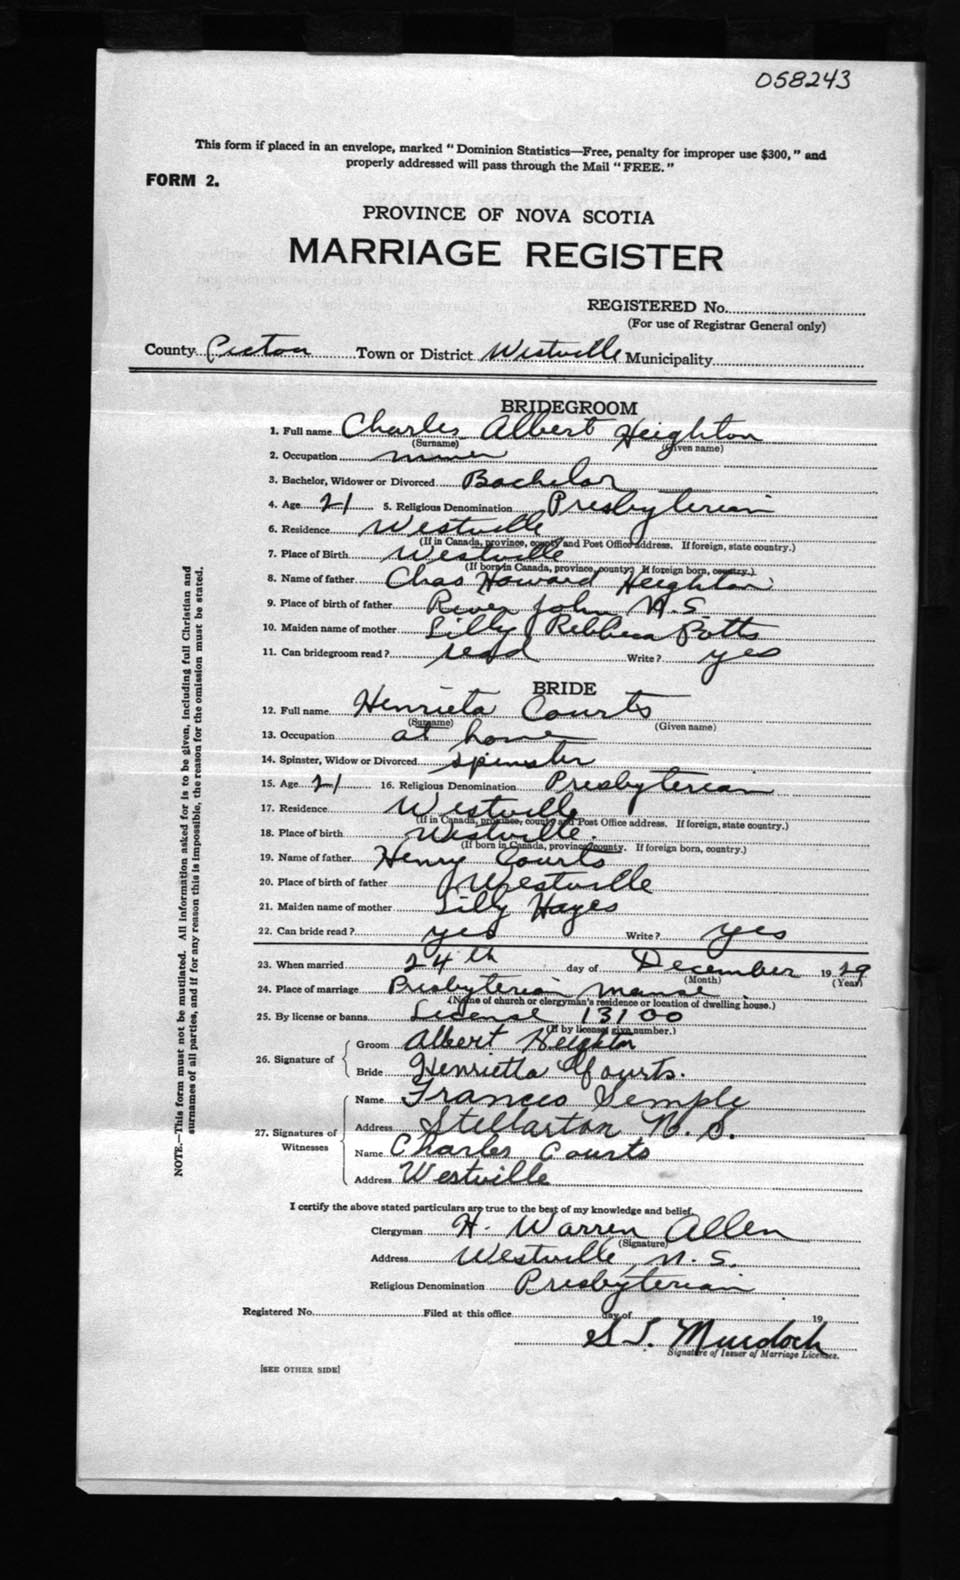 058243
This form if placed in an envelope, marked "Dominion Statistics—Free, penalty for improper use $300," and
properly addressed will pass through the Mail "FREE."
FORM 2.
PROVINCE OF NOVA SCOTIA
MARRIAGE REGISTER
REGISTERED No.
(For use of Registrar General only)
County Pictou Town or District Westville Municipality
BRIDEGROOM
1. Full name Charles Albert Heighton
(Surname) (Given name)
2. Occupation miner
3. Bachelor, Widower or Divorced Bachelor
4. Age 21 5. Religious Denomination Presbyterian
6. Residence Westville
(If in Canada, province, county and Post Office address. If foreign, state country.)
7. Place of Birth Westville
(If born in Canada, province, county. If foreign born, country.)
8. Name of father Chas Howard Heighton
9. Place of birth of father River John N.S.
10. Maiden name of mother Lilly Rebbeca Potts
11. Can bridegroom read? read Write? yes
BRIDE
12. Full name Henrieta Courts
(Surname) (Given name)
13. Occupation at home
14. Spinster, Widow or Divorced spinster
15. Age 21 16. Religious Denomination Presbyterian
17. Residence Westville
(If in Canada, province, county and Post Office address. If foreign, state country.)
18. Place of birth Westville.
(If born in Canada, province, county. If foreign born, country.)
19. Name of father Henry Courts
20. Place of birth of father Westville
21. Maiden name of mother Lilly Hayes
22. Can bride read? yes Write? yes
23. When married 24th day of December 1929
(Month) (Year)
24. Place of marriage Presbyterian Manse
(Name of church or clergyman's residence or location of dwelling house.)
25. By license or banns License 13100
(If by license give number.)
26. Signature of Groom Albert Heighton
Bride Henrietta Courts.
27. Signatures of Witnesses Name Frances Semple
Address Stellarton N.S.
Name Charles Courts
Address Westville
I certify the above stated particulars are true to the best of my knowledge and belief.
Clergyman H. Warren Allen
(Signature)
Address Westville, N.S.
Religious Denomination Presbyterian
Registered No. Filed at this office day of 19
S. Murdoch
Signature of Issuer of Marriage Licenses.
[SEE OTHER SIDE]
NOTE.—This form must not be mutilated. All information asked for is to be given, including full Christian and
surnames of all parties, and if for any reason this is impossible, the reason for the omission must be stated.